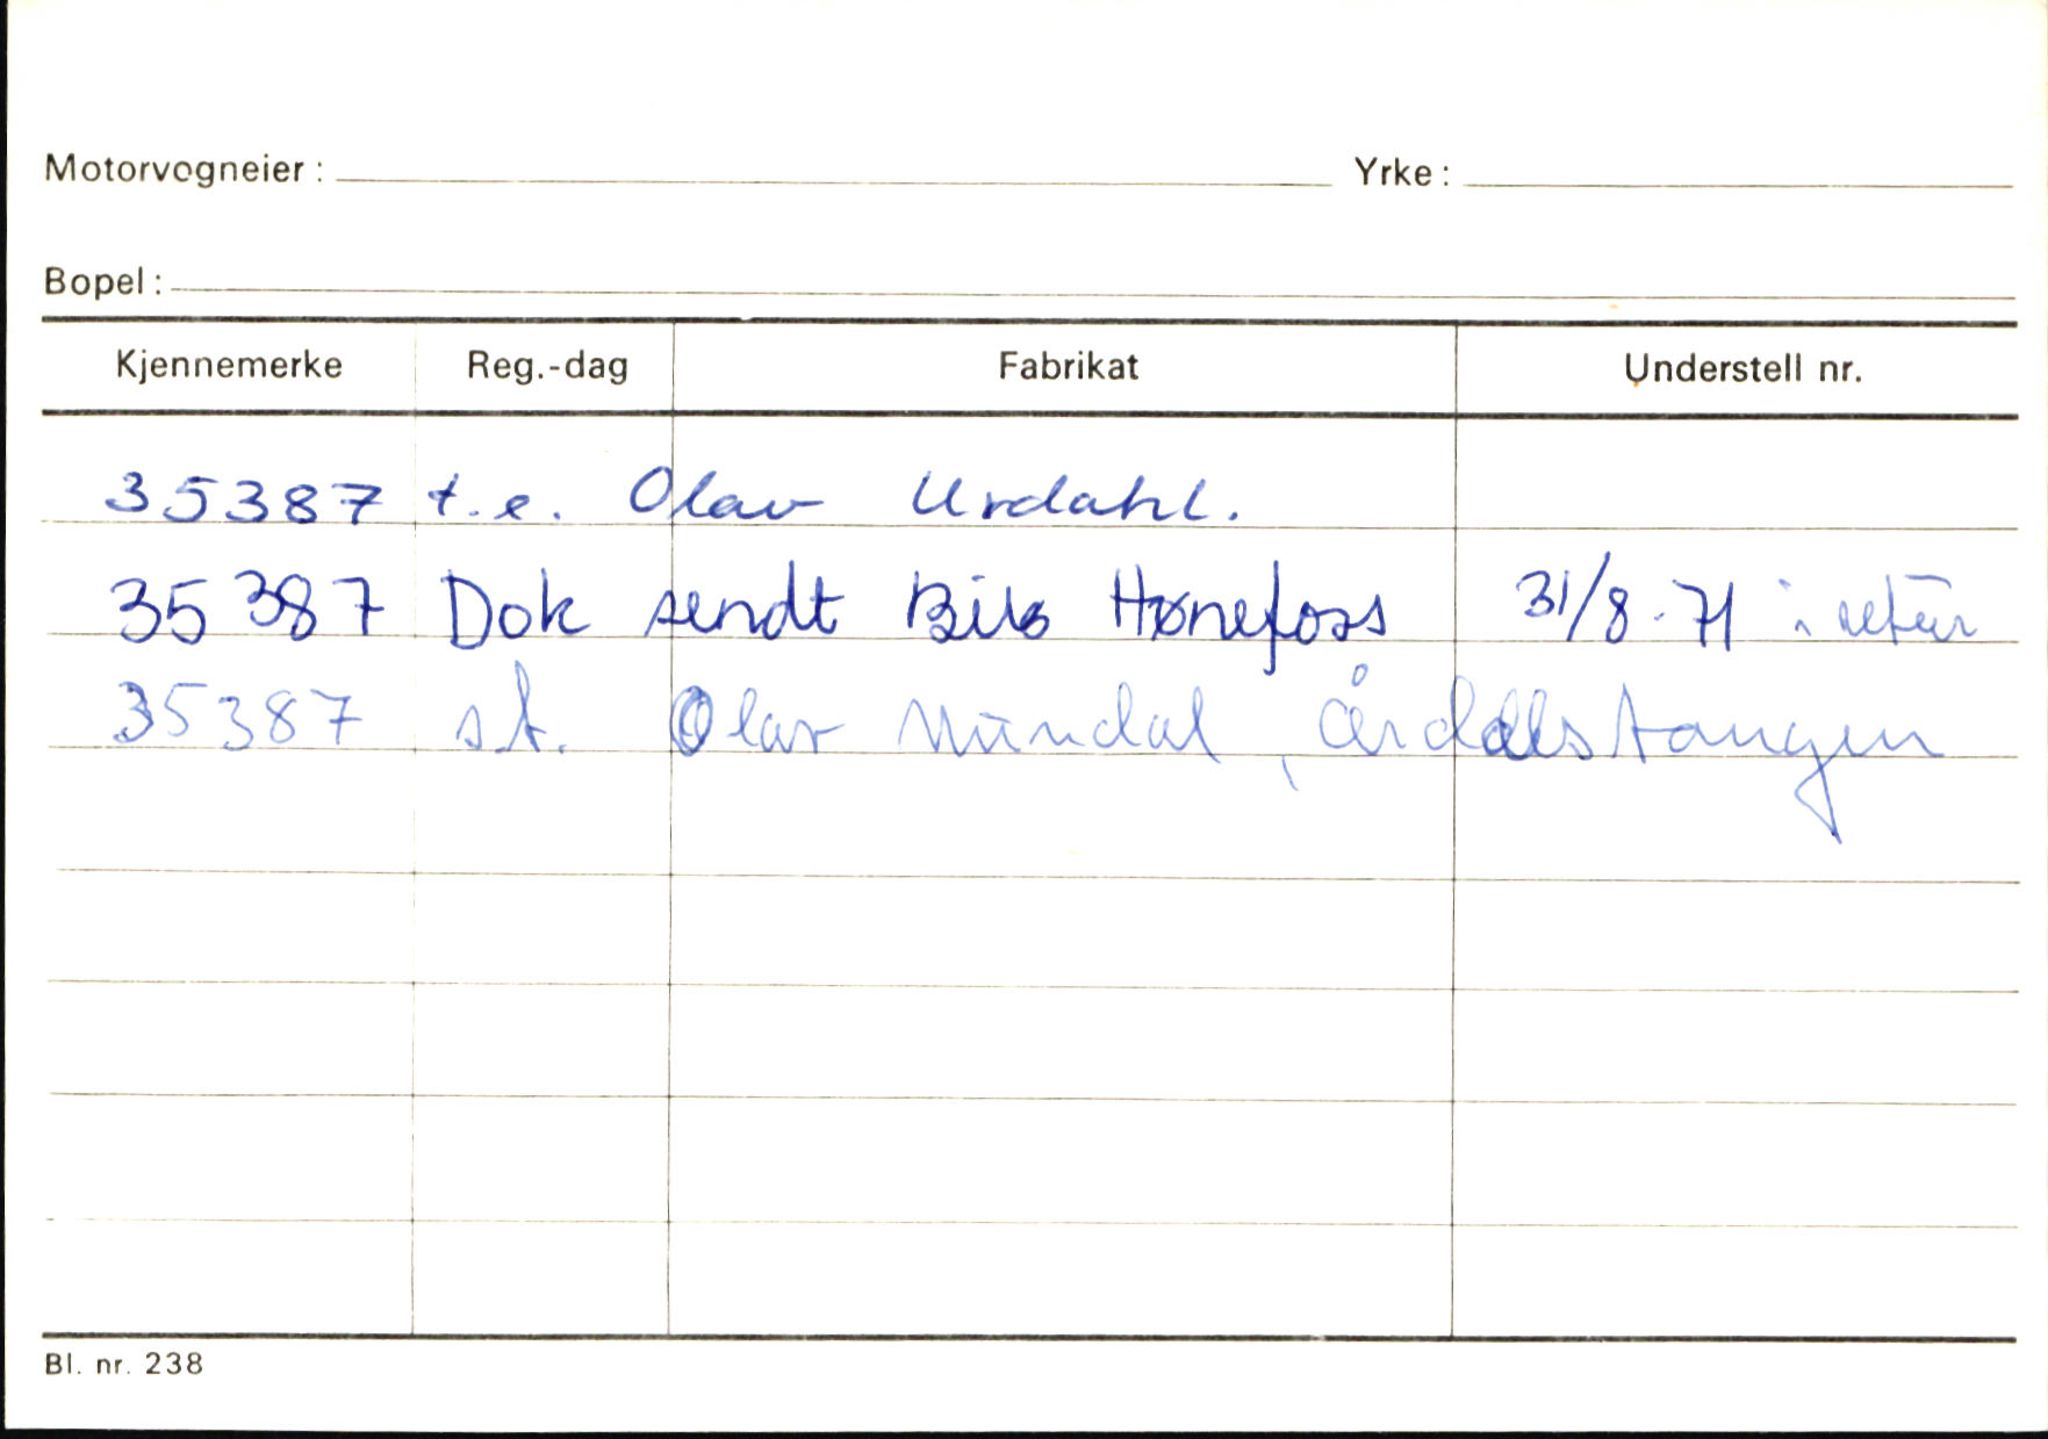 Motorvogneier : Yrke :
Bopel :
Kjennemerke Reg.-dag Fabrikat Understell nr.
35387 t.e. Olav Urdahl.
35387 Dok sendt Bils Hønefoss 31/8-71 i retur
35387 st. Olav Mundal, Årdalstangen
Bl. nr. 238